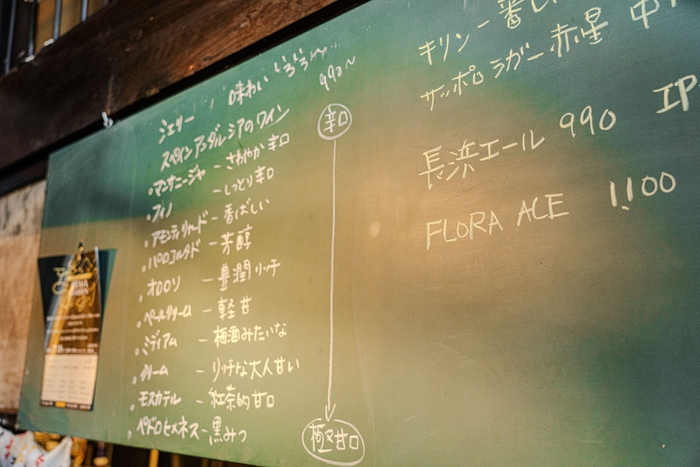 シェリー 味わいいろいろ〜… 990〜
スペインアンダルシアのワイン
・マンサニージャ - さわやか辛口
・フィノ - しっとり辛口
・アモンティリャード - 香ばしい
・パロコルタド - 芳醇
・オロロソ - 豊潤リッチ
・ペールクリーム - 軽甘
・ミディアム - 梅酒みたいな
・クリーム - リッチな大人甘い
・モスカテル - 紅茶的甘口
・ペドロヒメネス - 黒みつ
辛口
極甘口
キリン - 香ばし
サッポロラガー 赤星 中
長浜エール 990 IP
FLORA ALE 1,100